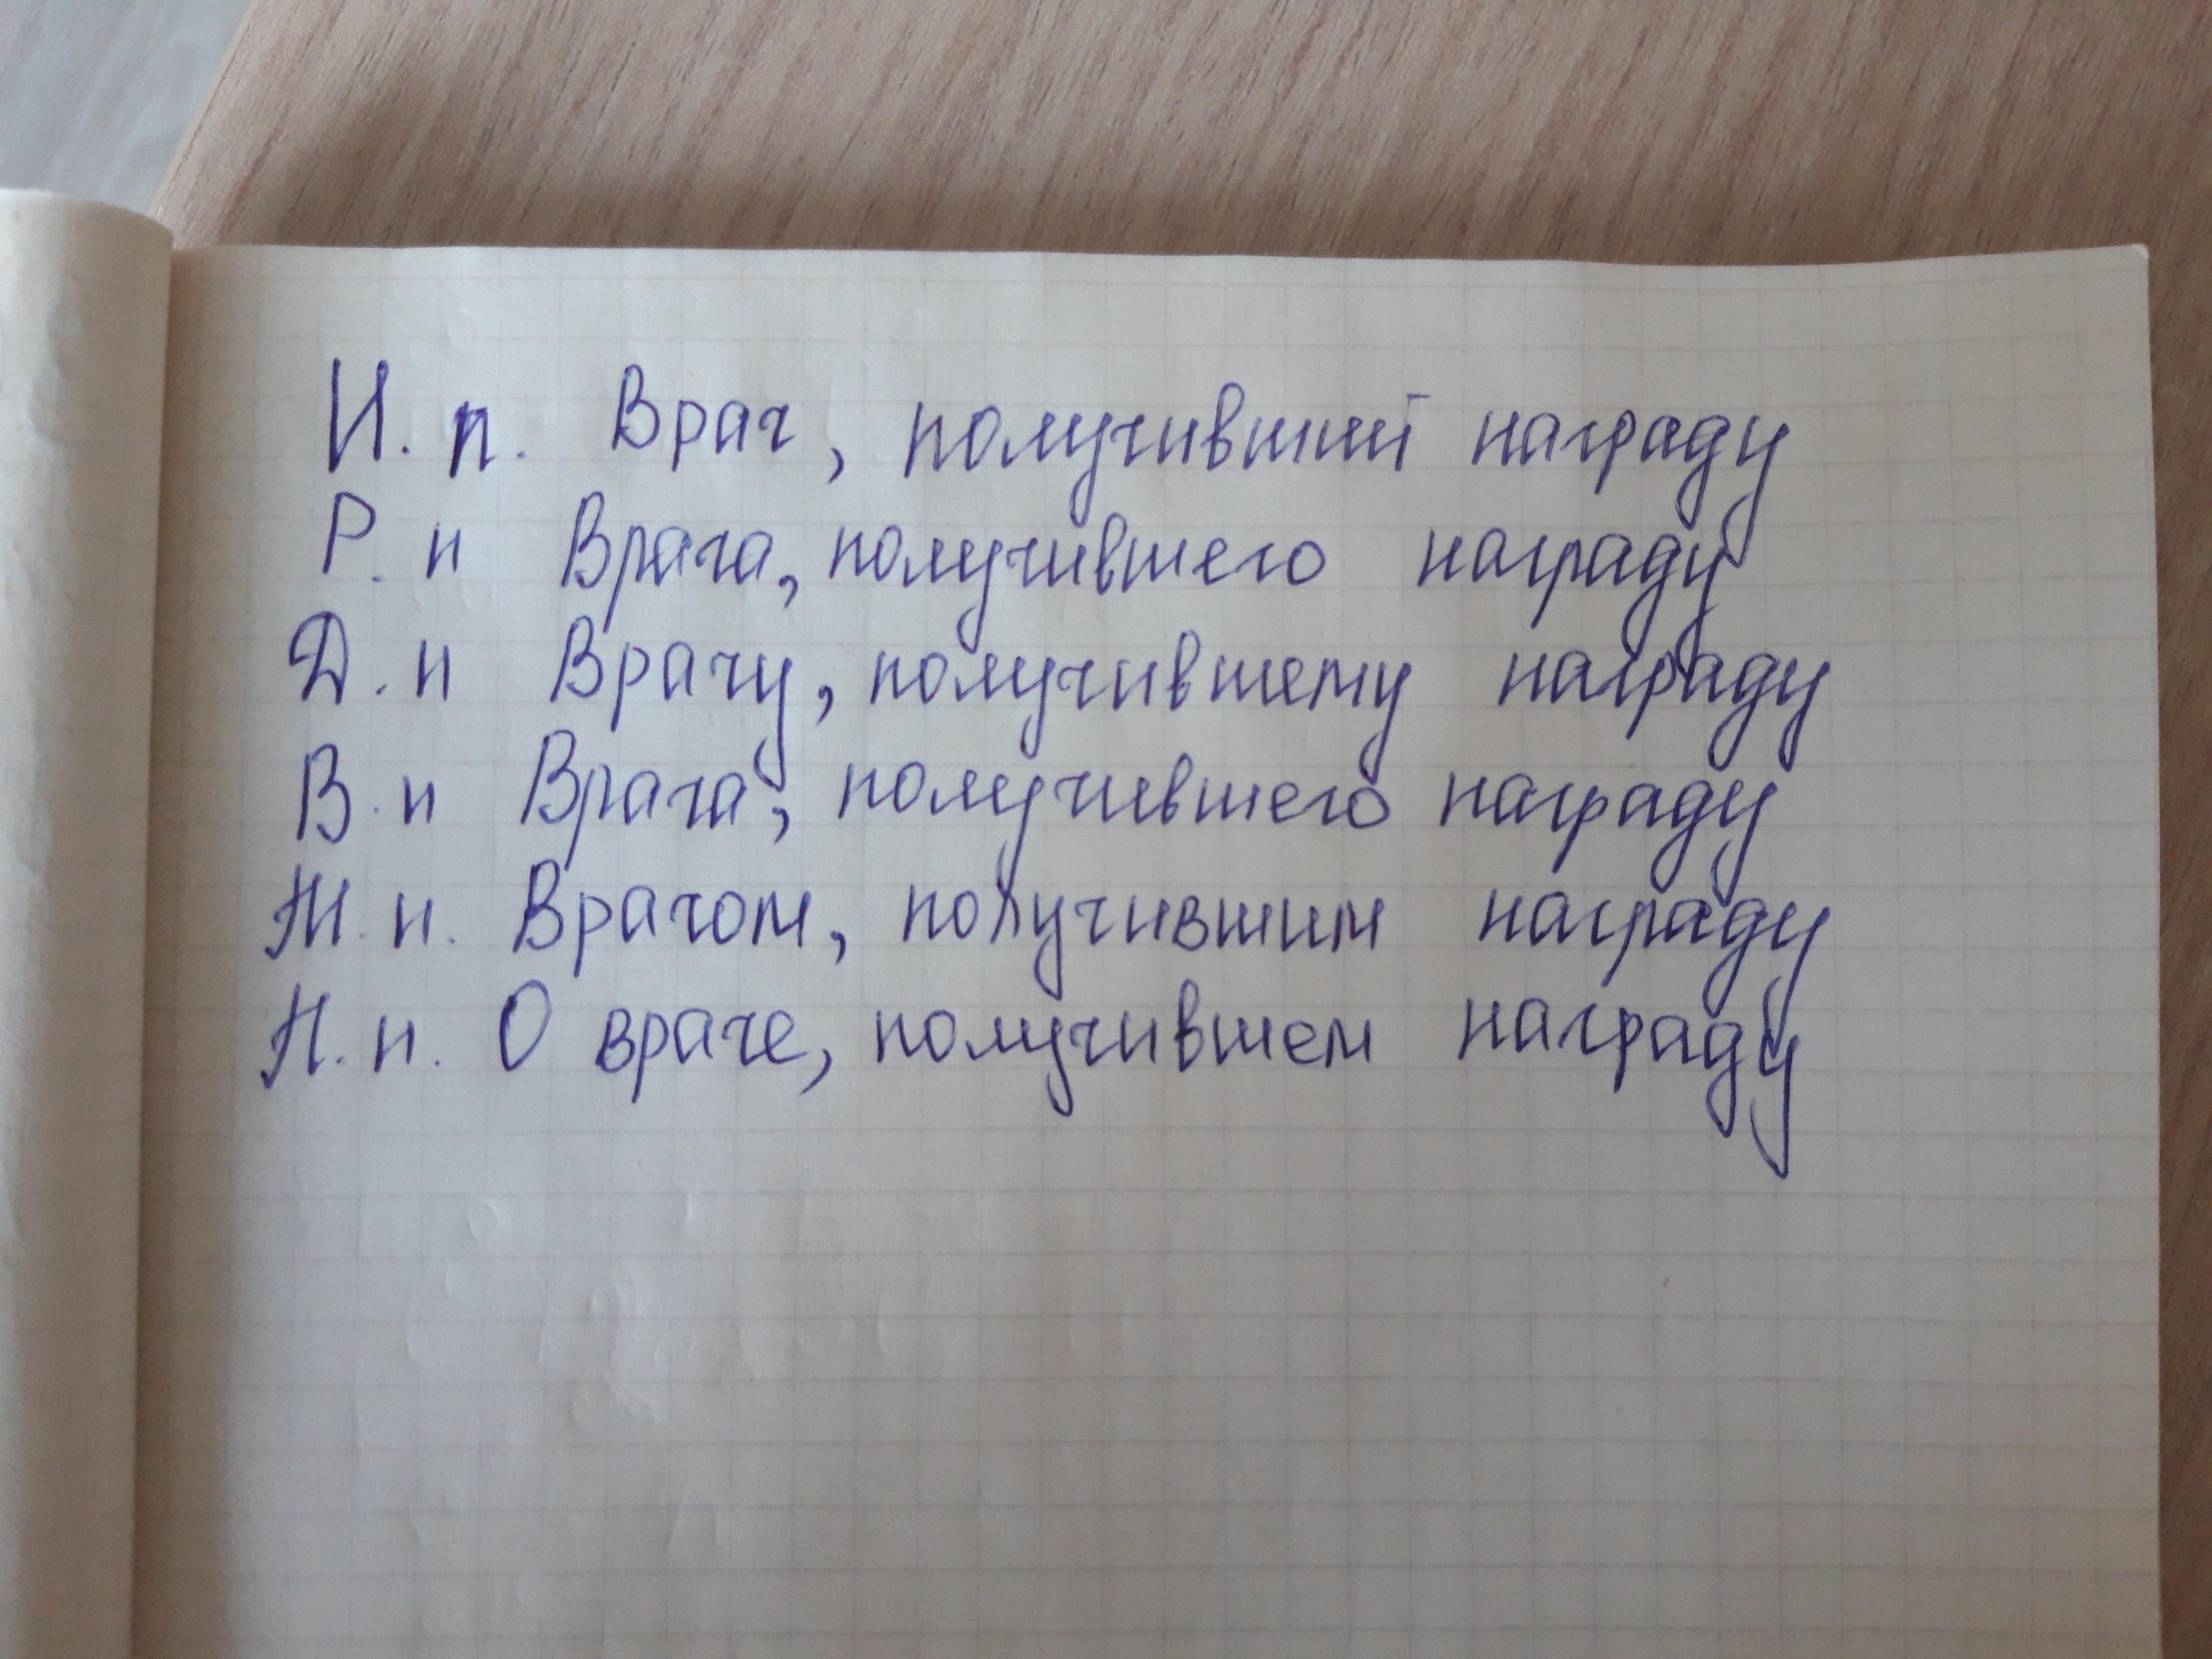 И. п. Врач, получивший награду
Р. п Врача, получившего награду
Д. п Врачу, получившему награду
В. п Врача, получившего награду
Т. п. Врачом, получившим награду
П. п. О враче, получившем награду